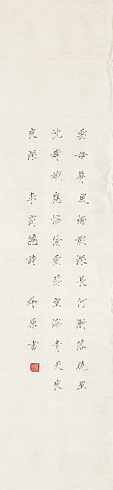 雲母屏風燭影深長河漸落曉星
沈嫦娥應悔偷靈藥碧海青天夜
夜深 李商隱詩 靜原書